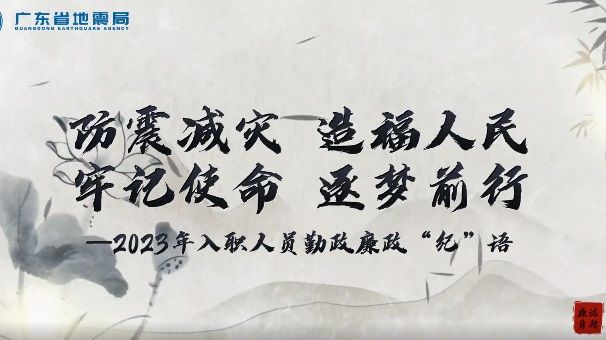 广东省地震局
GUANGDONG EARTHQUAKE AGENCY
防震减灾 造福人民
牢记使命 逐梦前行
—2023年入职人员勤政廉政“纪”语